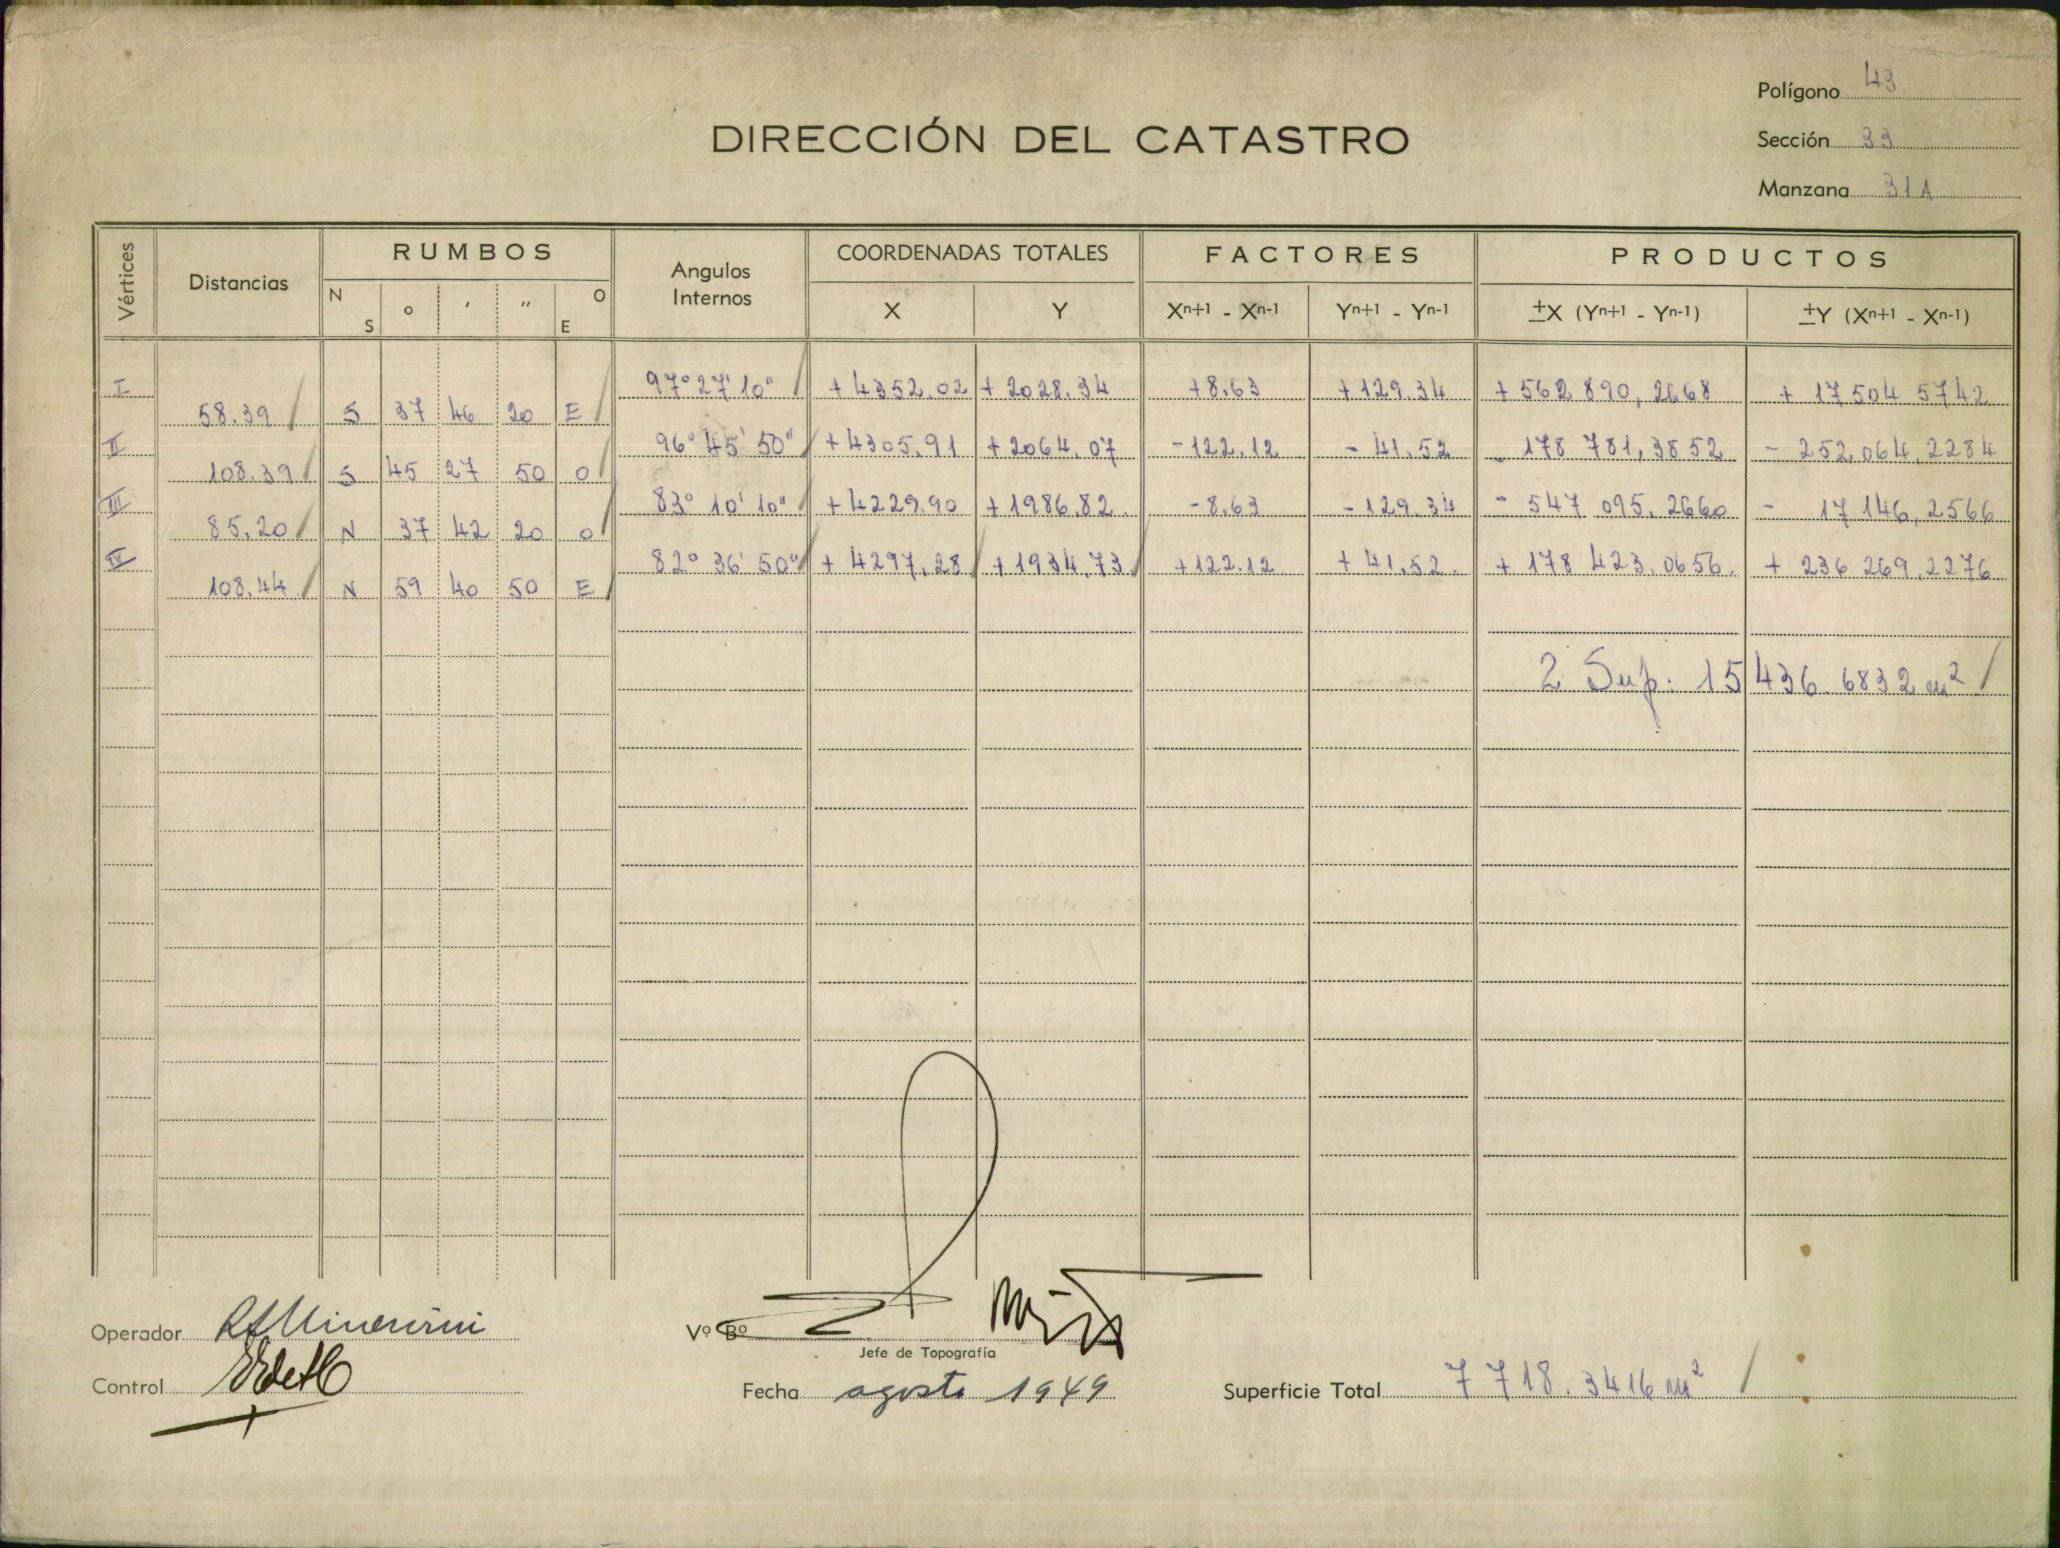 Polígono 43
DIRECCIÓN DEL CATASTRO
Sección 33
Manzana 31A
Vértices Distancias RUMBOS Angulos Internos COORDENADAS TOTALES FACTORES PRODUCTOS
N S ° ' " O E X Y Xn+1 - Xn-1 Yn+1 - Yn-1 ±X (Yn+1 - Yn-1) ±Y (Xn+1 - Xn-1)
I 97° 27' 10" +4352.02 +2028.34 +8.63 +129.34 +562 890,2668 + 17 504 5742
58.39 S 37 46 20 E
II 96° 45' 50" +4305.91 +2064.07 -122.12 -41.52 - 178 781,3852 - 252.064.2284
108.39 S 45 27 50 O
III 83° 10' 10" +4229.90 +1986.82 -8.63 -129.34 - 547 095.2660 - 17 146,2566
85,20 N 37 42 20 O
IV 82° 36' 50" +4297,28 +1934.73 +122.12 +41.52 + 178 423.0656 + 236 269.2276
108.44 N 59 40 50 E
2 Sup. 15 436 6832 m²
Operador
Vº Bº
Jefe de Topografía
Control
Fecha agosto 1949
Superficie Total 7 718.3416 m²